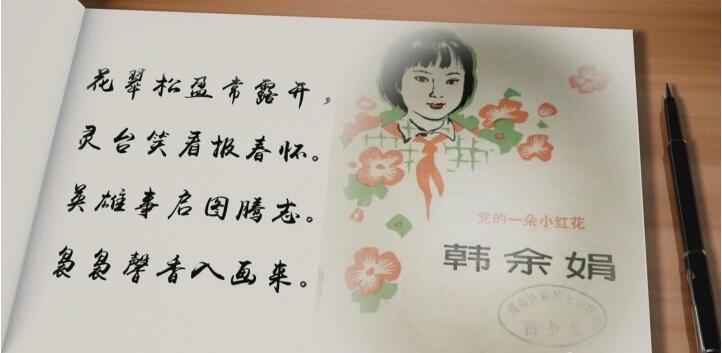 花翠松盈常露开，
灵台笑看报春怀。
英雄事启图腾志。
袅袅馨香入画来。
党的一朵小红花
韩余娟
图书室